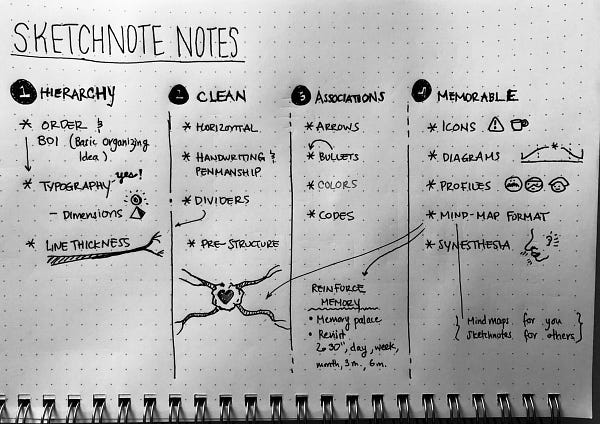 SKETCHNOTE NOTES
1 HIERARCHY
* ORDER &
BOI (Basic Organizing
Idea)
* TYPOGRAPHY yes!
- Dimensions
* LINE THICKNESS
2 CLEAN
* HORIZONTAL
* HANDWRITING &
PENMANSHIP
* DIVIDERS
* PRE-STRUCTURE
3 ASSOCIATIONS
* ARROWS
* BULLETS
* COLORS
* CODES
REINFORCE
MEMORY
• Memory palace
• Revisit
30", day, week,
month, 3m., 6m.
4 MEMORABLE
* ICONS
* DIAGRAMS
* PROFILES
* MIND-MAP FORMAT
* SYNESTHESIA
{ Mind maps for you }
{ sketchnotes for others }